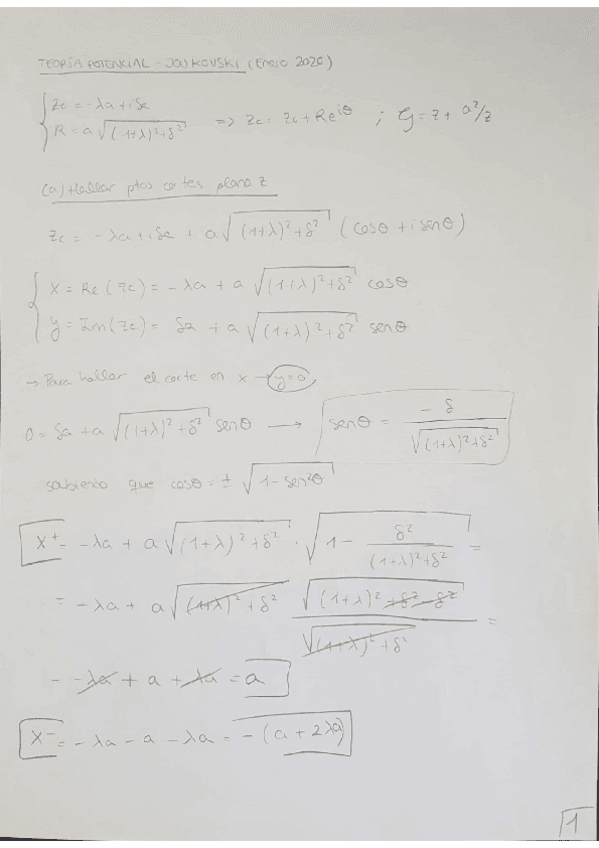 TEORÍA POTENCIAL - JOUKOVSKI (Enero 2026)
{ Zc = -λa + iδa
R = a√((1+λ)²+δ²) => Zc = Zc + Re^iθ ; ζ = z + a²/z
(a) Hallar ptos cortes plano z
Zc = -λa + iδa + a√((1+λ)²+δ²) (cosθ + i senθ)
{ X = Re(Zc) = -λa + a√((1+λ)²+δ²) cosθ
y = Im(Zc) = δa + a√((1+λ)²+δ²) senθ
→ Para hallar el corte en x → y=0
0 = δa + a√((1+λ)²+δ²) senθ → senθ = -δ / √((1+λ)²+δ²)
sabiendo que cosθ = ± √(1-sen²θ)
X⁺ = -λa + a√((1+λ)²+δ²) · √(1 - δ²/((1+λ)²+δ²)) =
= -λa + a√((1+λ)²+δ²) √((1+λ)²+δ²-δ²) / √((1+λ)²+δ²) =
- -λa + a + λa = a
X⁻ = -λa - a - λa = -(a+2λa)
1